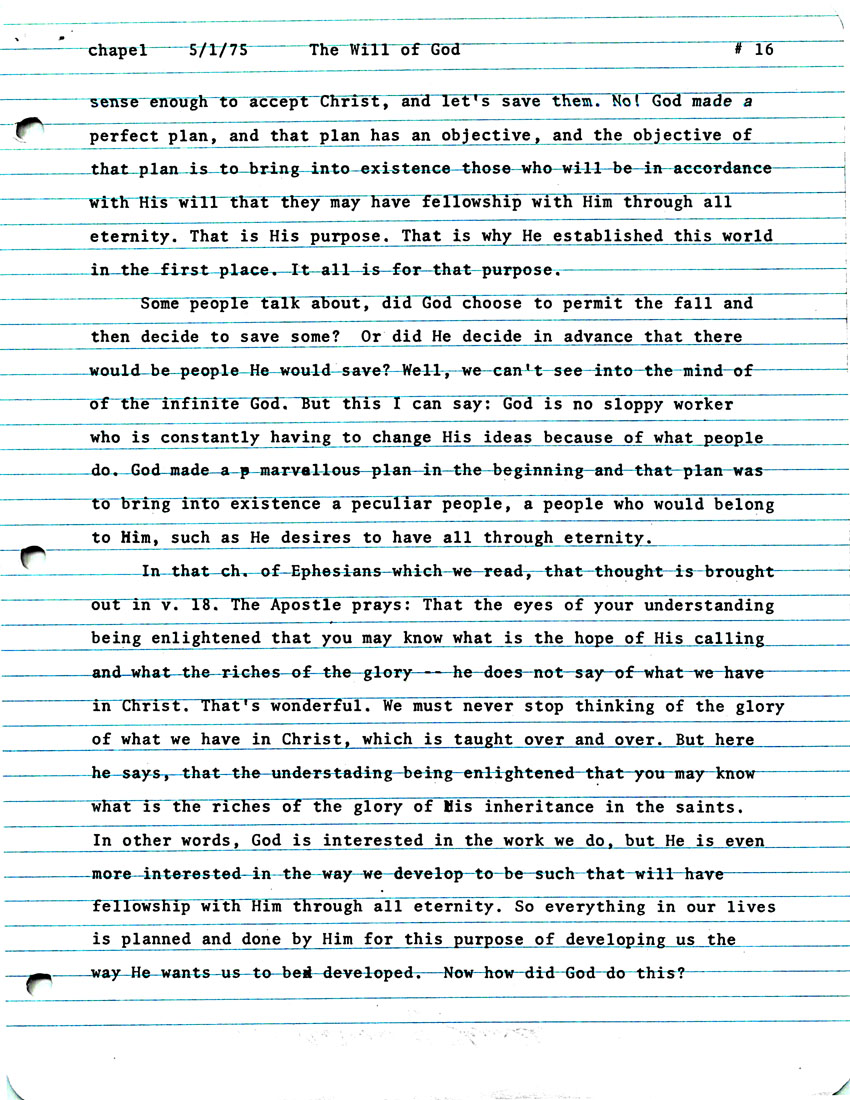 chapel 5/1/75 The Will of God # 16
sense enough to accept Christ, and let's save them. No! God made a
perfect plan, and that plan has an objective, and the objective of
that plan is to bring into existence those who will be in accordance
with His will that they may have fellowship with Him through all
eternity. That is His purpose. That is why He established this world
in the first place. It all is for that purpose.
Some people talk about, did God choose to permit the fall and
then decide to save some? Or did He decide in advance that there
would be people He would save? Well, we can't see into the mind of
of the infinite God. But this I can say: God is no sloppy worker
who is constantly having to change His ideas because of what people
do. God made a p marvellous plan in the beginning and that plan was
to bring into existence a peculiar people, a people who would belong
to Him, such as He desires to have all through eternity.
In that ch. of Ephesians which we read, that thought is brought
out in v. 18. The Apostle prays: That the eyes of your understanding
being enlightened that you may know what is the hope of His calling
and what the riches of the glory -- he does not say of what we have
in Christ. That's wonderful. We must never stop thinking of the glory
of what we have in Christ, which is taught over and over. But here
he says, that the understading being enlightened that you may know
what is the riches of the glory of His inheritance in the saints.
In other words, God is interested in the work we do, but He is even
more interested in the way we develop to be such that will have
fellowship with Him through all eternity. So everything in our lives
is planned and done by Him for this purpose of developing us the
way He wants us to be developed. Now how did God do this?